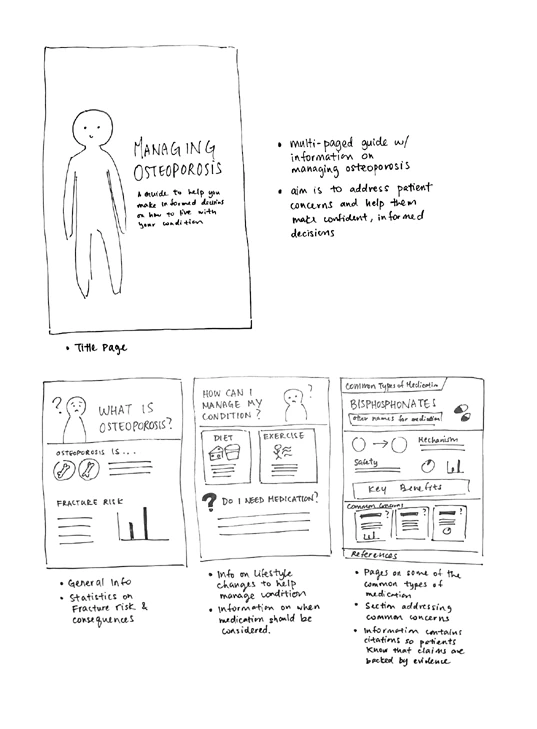 MANAGING
OSTEOPOROSIS
A guide to help you
make informed decisions
on how to live with
your condition
• Title Page
• multi-paged guide w/
information on
managing osteoporosis
• aim is to address patient
concerns and help them
make confident, informed
decisions
?
WHAT IS
OSTEOPOROSIS?
OSTEOPOROSIS IS...
FRACTURE RISK
• General Info
• Statistics on
Fracture risk &
consequences
HOW CAN I
MANAGE MY
CONDITION?
?
DIET
EXERCISE
? DO I NEED MEDICATION?
• Info on Lifestyle
changes to help
manage condition
• Information on when
medication should be
considered.
Common Types of Medication
BISPHOSPHONATES
Other names for medication
Mechanism
Safety
Key Benefits
Common Concerns
?
?
?
References
• Pages on some of the
common types of
medication
• Section addressing
common concerns
• Information contains
citations so patients
Know that claims are
backed by evidence